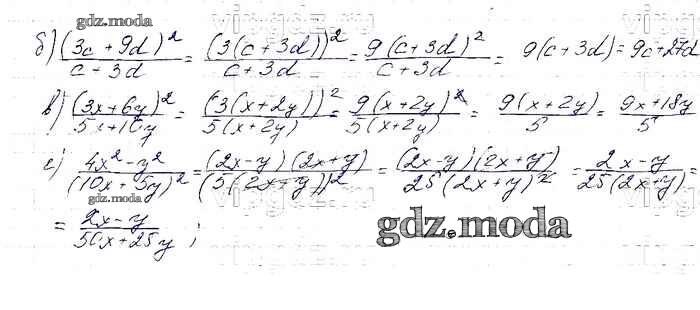 gdz.moda
б) (3c + 9d)² / c + 3d = (3(c + 3d))² / c + 3d = 9(c + 3d)² / c + 3d = 9(c + 3d) = 9c + 27d
в) (3x + 6y)² / 5x + 10y = (3(x + 2y))² / 5(x + 2y) = 9(x + 2y)² / 5(x + 2y) = 9(x + 2y) / 5 = 9x + 18y / 5
е) 4x² - y² / (10x + 5y)² = (2x - y)(2x + y) / (5(2x + y))² = (2x - y)(2x + y) / 25(2x + y)² = 2x - y / 25(2x + y) =
gdz.moda
= 2x - y / 50x + 25y ;
gdz.moda